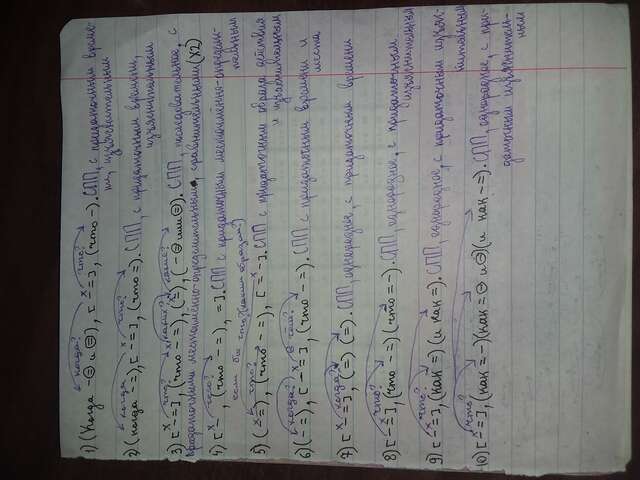 когда? х что?
1) (Когда -⊜ и ⊜), [-=], (что -). СПП, с придаточным време-
ни, изъяснительным
когда х что?
2) (когда -=), [-=], (что =). СПП, с придаточным времени,
изъяснительным
х что? х каких? х какие?
3) [-=], (что -=), (=), (-⊖ или ⊜). СПП, последовательное, с
придаточными местоимённо-определительным, сравнительными (х2)
х чего?
4) [-=, (что -=), =]. СПП с придаточным местоимённо-определи-
тельным
если бы что? (каким образом?)
5) (=), (что -=), [=-]. СПП с придаточным образа действия
и изъяснительным
когда? х в чём?
6) (-=), [-=], (что -=). СПП с придаточным времени и
места
х когда?
7) [-=], (=) (=). СПП, однородное, с придаточным времени
х что?
8) [-=], (что -=) (что =-). СПП, однородное, с придаточным
изъяснительным
х что?
9) [-=], (как =) (и как =). СПП, однородное, с придаточным изъяс-
нительным
х что?
10) [-=], (как =-) (как =⊖ и ⊖) (и как -=). СПП, однородное, с при-
даточным изъяснитель-
ным